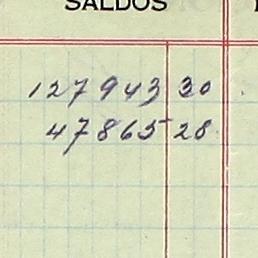 SALDOS
127943 30
47865 28